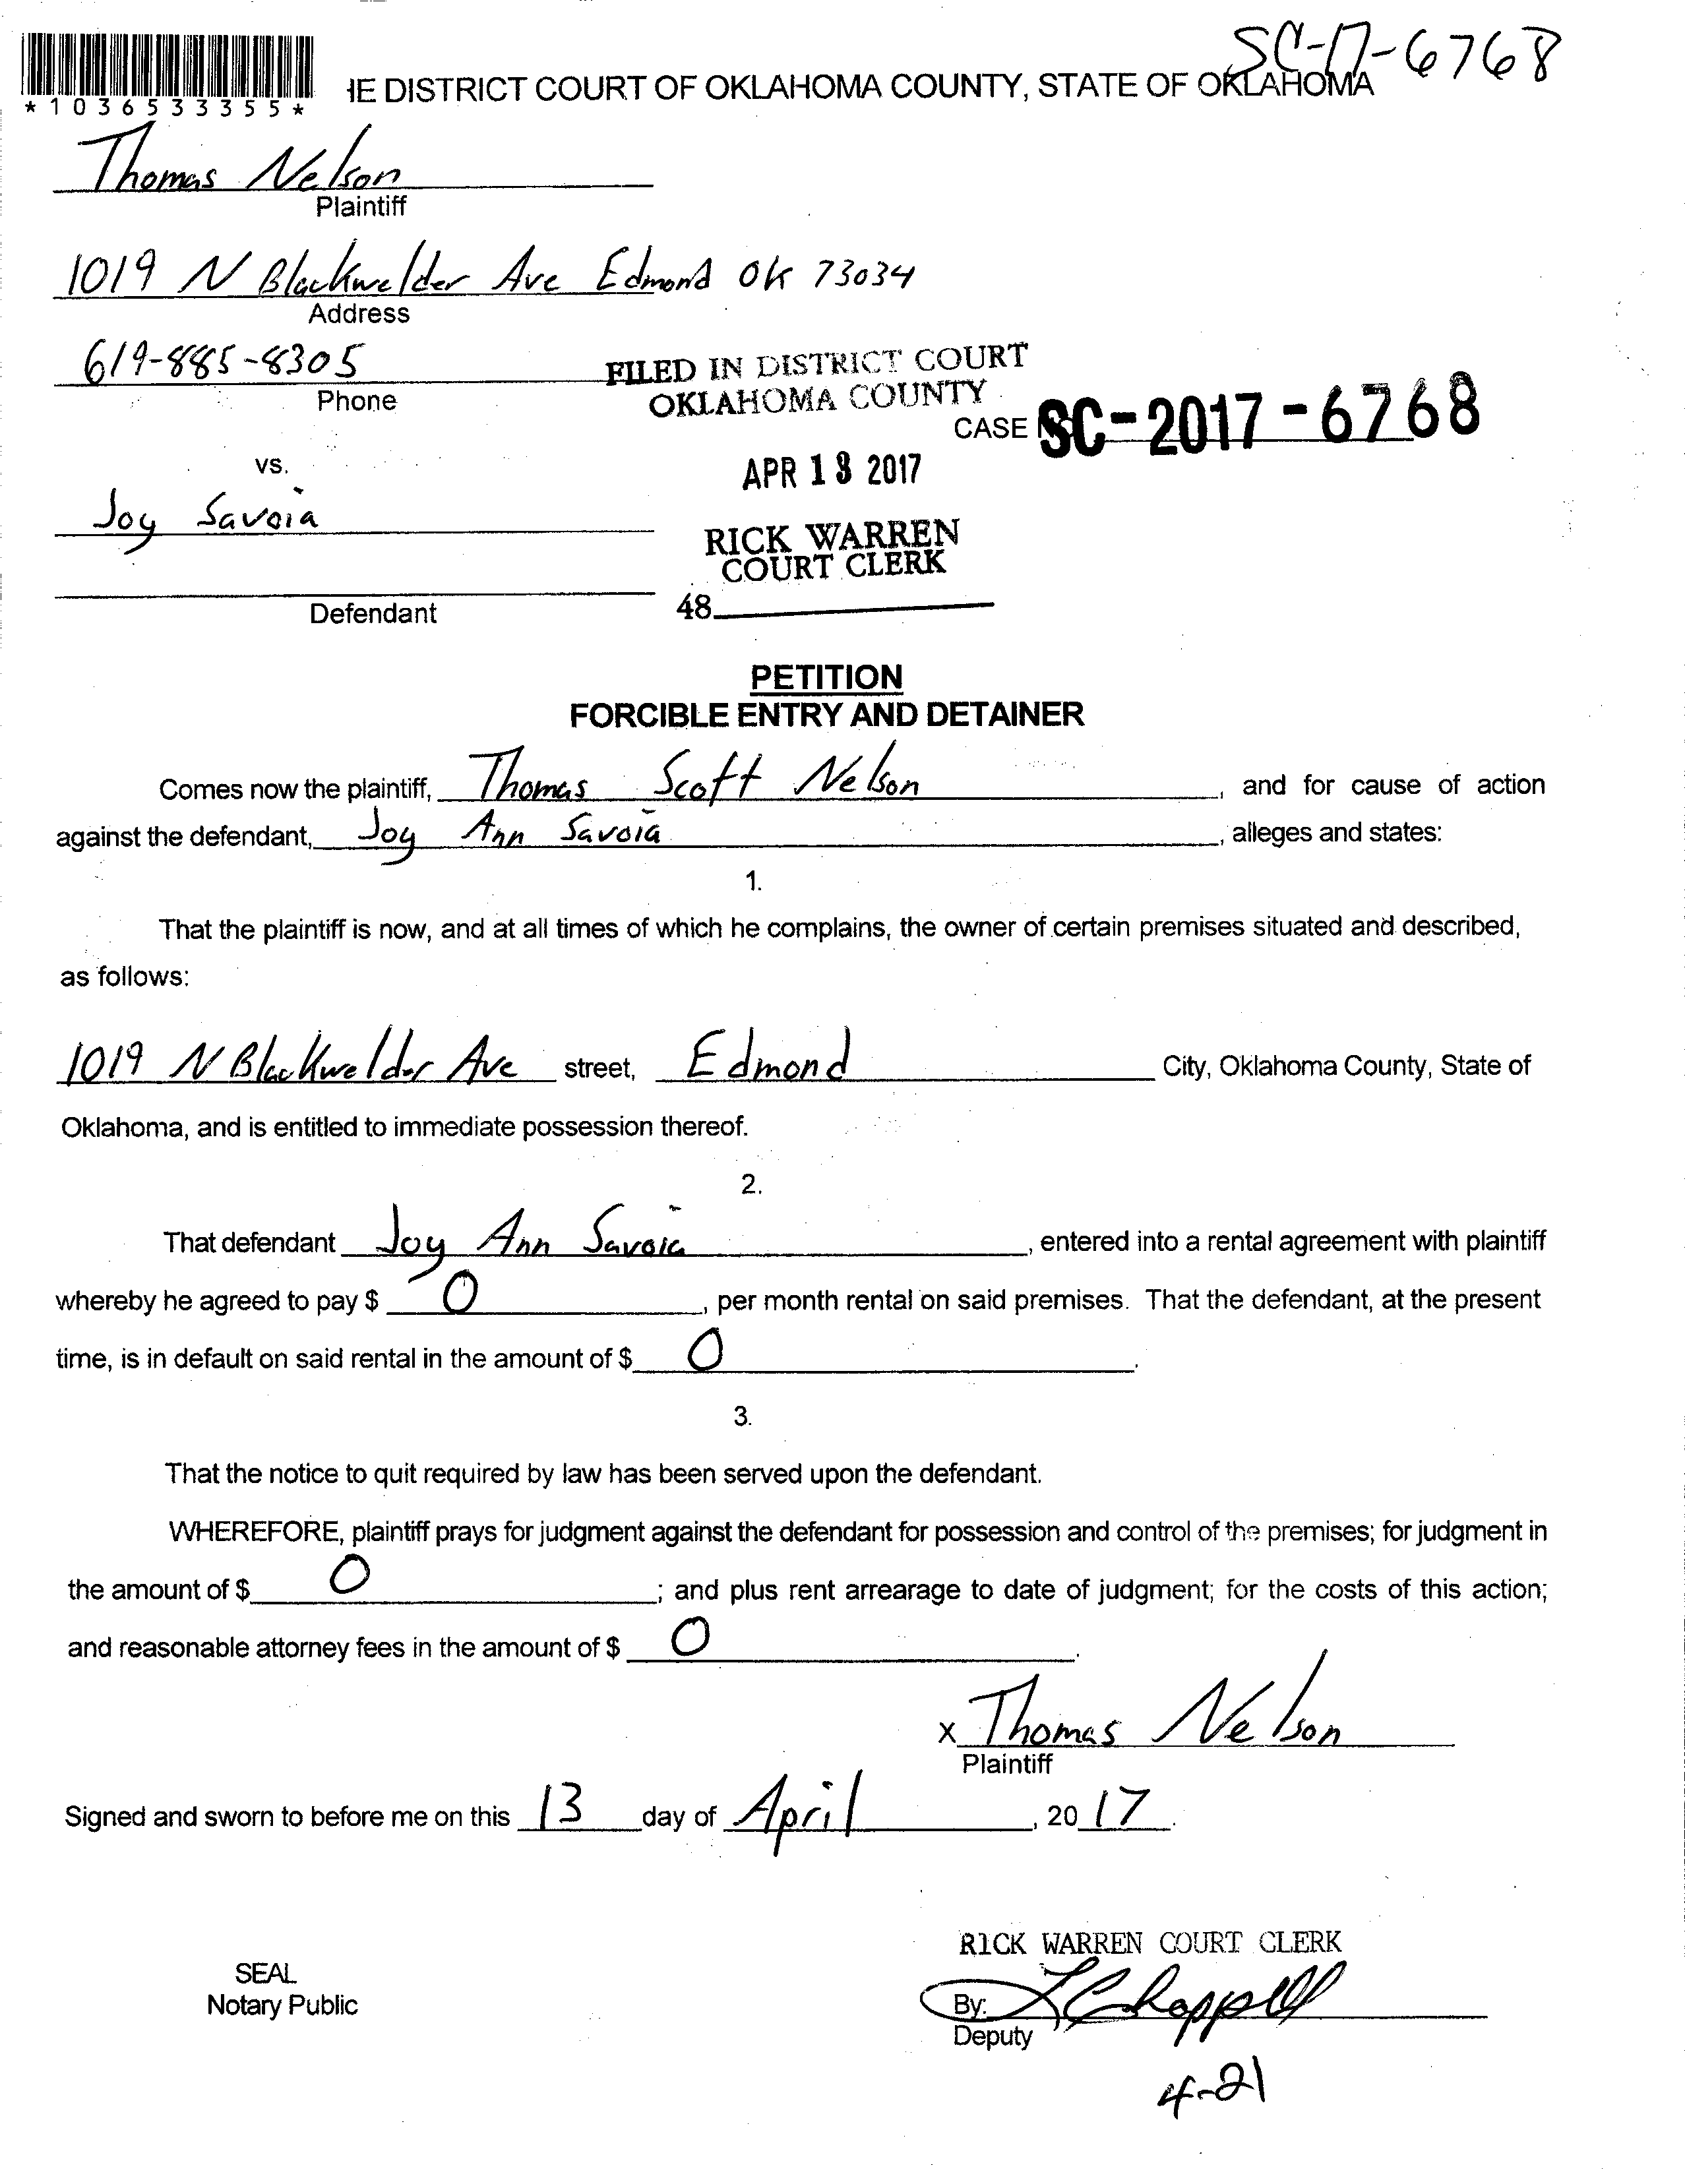 SC-17-6768
*1036533355*
HE DISTRICT COURT OF OKLAHOMA COUNTY, STATE OF OKLAHOMA
Thomas Nelson
Plaintiff
1019 N Blackwelder Ave Edmond OK 73034
Address
619-885-8305
Phone
FILED IN DISTRICT COURT
OKLAHOMA COUNTY
CASE SC-2017-6768
vs.
APR 13 2017
Joy Savoia
RICK WARREN
COURT CLERK
48
Defendant
PETITION
FORCIBLE ENTRY AND DETAINER
Comes now the plaintiff, Thomas Scott Nelson, and for cause of action
against the defendant, Joy Ann Savoia, alleges and states:
1.
That the plaintiff is now, and at all times of which he complains, the owner of certain premises situated and described,
as follows:
1019 N Blackwelder Ave street, Edmond City, Oklahoma County, State of
Oklahoma, and is entitled to immediate possession thereof.
2.
That defendant Joy Ann Savoia, entered into a rental agreement with plaintiff
whereby he agreed to pay $ 0, per month rental on said premises. That the defendant, at the present
time, is in default on said rental in the amount of $ 0.
3.
That the notice to quit required by law has been served upon the defendant.
WHEREFORE, plaintiff prays for judgment against the defendant for possession and control of the premises; for judgment in
the amount of $ 0; and plus rent arrearage to date of judgment; for the costs of this action;
and reasonable attorney fees in the amount of $ 0.
x Thomas Nelson
Plaintiff
Signed and sworn to before me on this 13 day of April, 2017.
RICK WARREN COURT CLERK
SEAL
Notary Public
By: L Chappell
Deputy
4-21